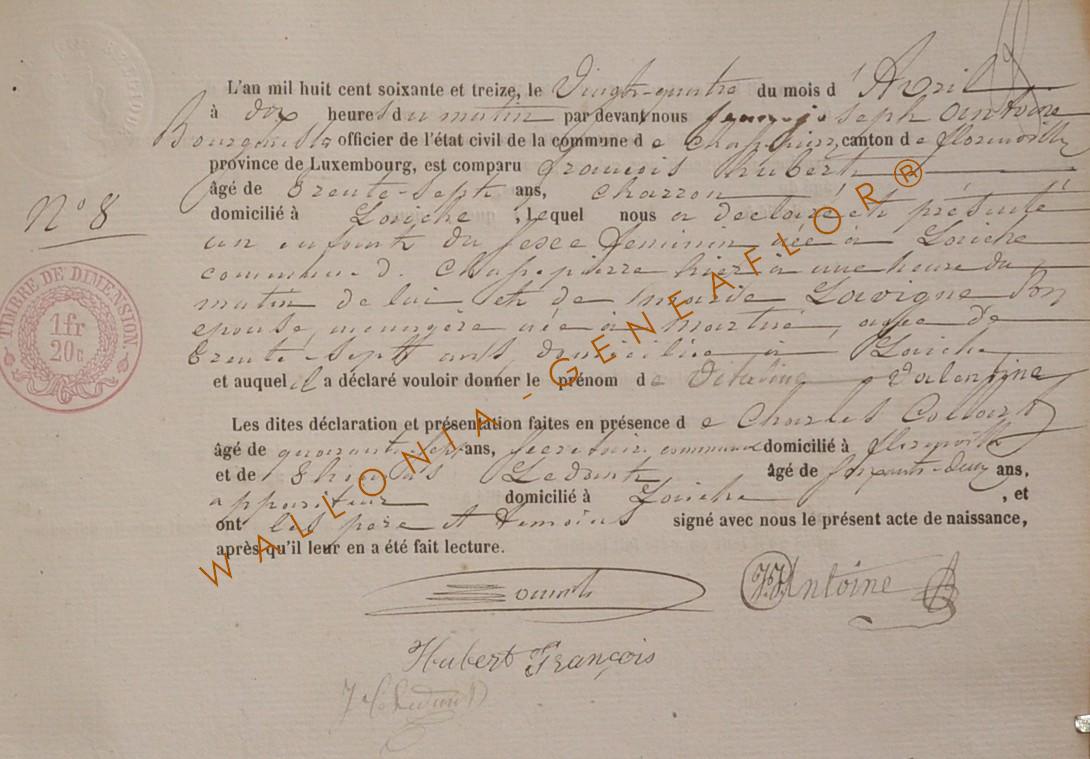 L'an mil huit cent soixante et treize, le Vingt-quatre du mois d'Avril
à dix heures du matin par devant nous Jean-joseph Antoine
Bourgmestre officier de l'état civil de la commune de canton de florenville
province de Luxembourg, est comparu François hubert
âgé de trente-sept ans, charron
N° 8
domicilié à Laiche, Lequel nous a déclaré et présenté
un enfant du sexe féminin née à Laiche
commune d. hier à une heure du
matin de lui et de marie Lavigne Son
épouse, ménagère née à martué, agée de
trente-sept ans, domiciliée à Laiche
et auquel il a déclaré vouloir donner le prénom de Vitaline Valentine
Les dites déclaration et présentation faites en présence de Charles Collart
âgé de ans, secrétaire communal domicilié à florenville
et de Ledant âgé de ans,
appariteur domicilié à Laiche, et
ont les père et témoins signé avec nous le présent acte de naissance,
après qu'il leur en a été fait lecture.
J.J. Antoine
Hubert François
TIMBRE DE DIMENSION.
1 fr
20 c
WALLONIA - GENEAFLOR ®